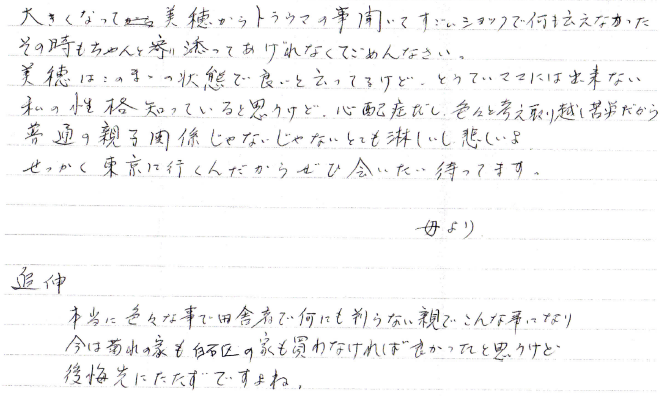 大きくなって美穂からトラウマの事聞いてすごいショックで何も云えなかった
その時もちゃんと寄り添ってあげれなくてごめんなさい。
美穂はこのまゝの状態で良いと云ってるけど、とうていママには出来ない
私の性格知っていると思うけど、心配症だし、色々と考え取り越し苦労だから
普通の親子関係じゃないじゃないとても淋しいし悲しいよ
せっかく東京に行くんだからぜひ会いたい待ってます。
母より
追伸
本当に色々な事で田舎者で何にも判らない親でこんな事になり
今は菊水の家も白石区の家も買わなければ良かったと思うけど
後悔先にたたずですよね。